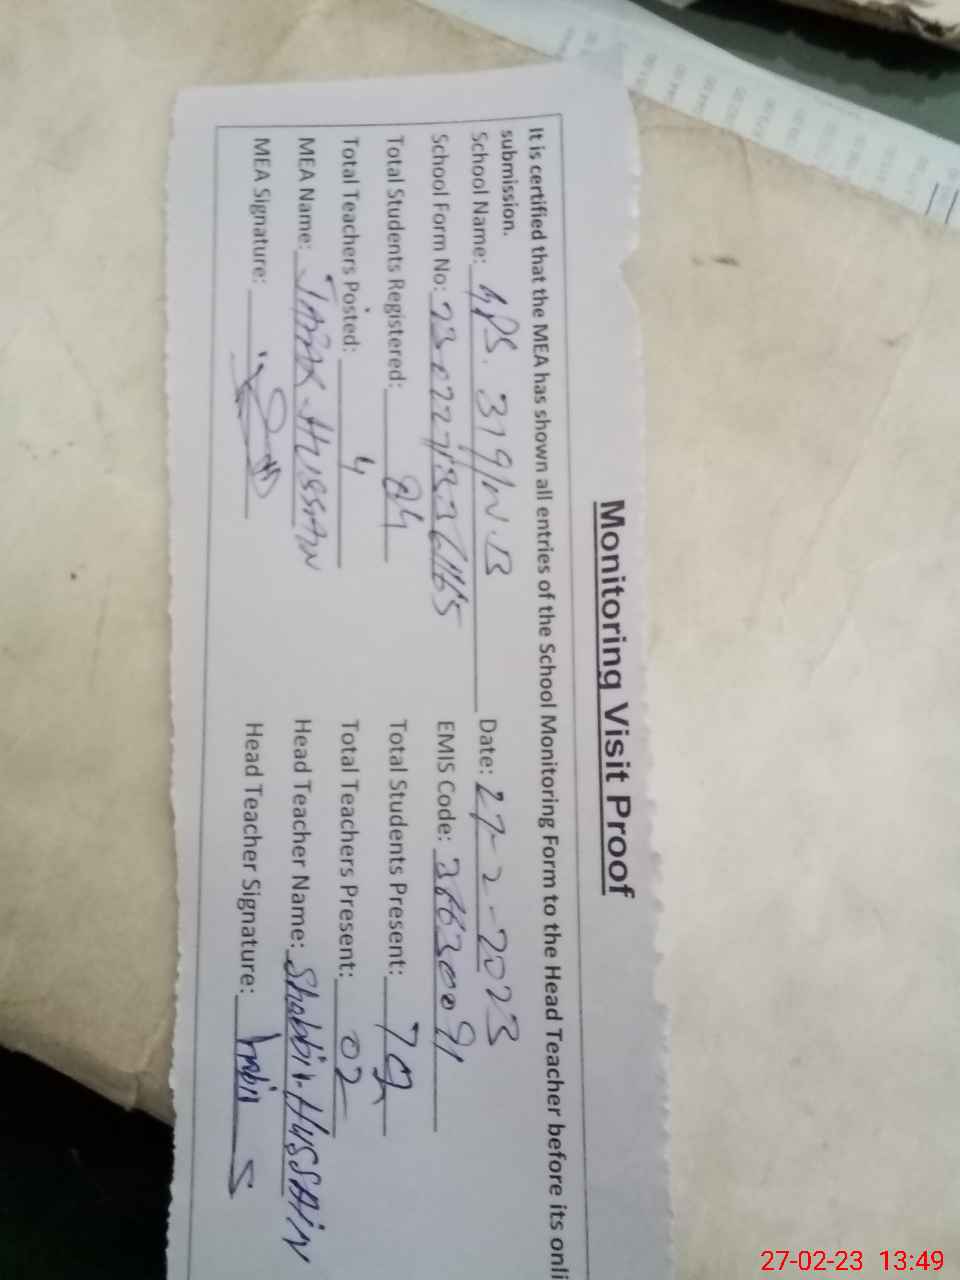 Monitoring Visit Proof
It is certified that the MEA has shown all entries of the School Monitoring Form to the Head Teacher before its onli
submission.
School Name: GPS. 319/W.B Date: 27-2-2023
School Form No: EMIS Code:
Total Students Registered: 84 Total Students Present:
Total Teachers Posted: 4 Total Teachers Present: 02
MEA Name: Head Teacher Name: Shabbir-HUSSAIN
MEA Signature: Head Teacher Signature:
27-02-23 13:49